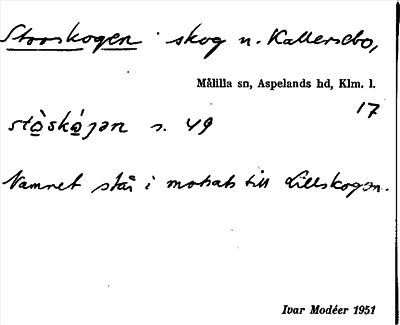 Storskogen skog n. Kallersebo,
Målilla sn, Aspelands hd, Klm. l.
17
stò̱skó̱jən s. 49
Namnet står i motsats till Lillskogen.
Ivar Modéer 1951